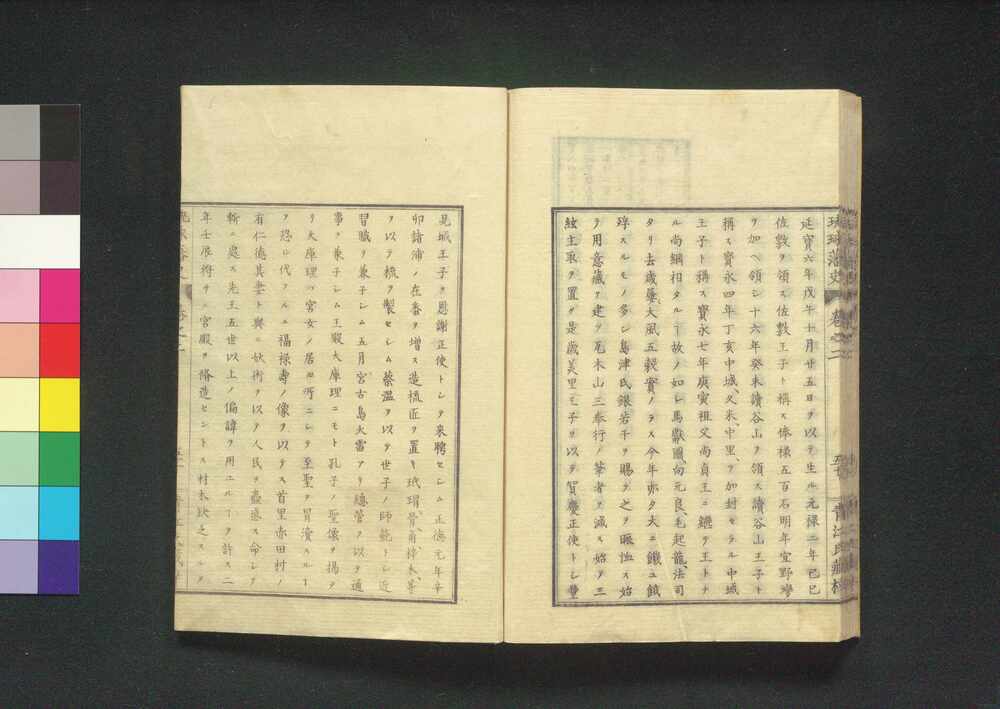 琉球藩史 卷之二 青江氏藏板
延寶六年戊午十月廿五日ヲ以テ生ル元祿二年己巳
佐敷ヲ領ス佐敷王子ト稱ス俸樣五百石明年宜野灣
ヲ加ヘ領シ十六年癸未讀谷山ヲ領ス讀谷山王子ト
稱ス寶永四年丁亥中城、久米、中里、ヲ加封セラル中城
王子ト稱ス寶永七年庚寅祖父尚貞王ニ繼テ王トナ
ル尚綱相タルヿ故ノ如シ馬獻圖向元良、毛起龍、法司
タリ去歲屢大風五穀實ノラス今年亦タ大ニ饑ユ餓
莩スルモノ多シ島津氏銀若干ヲ賜テ之ヲ賑恤ス始
テ用意藏ヲ建テ瓦木山三奉行ノ筆者ヲ減ス始テ三
絃主取ヲ置ク是歲美里王子ヲ以テ賀慶正使トシ豐
見城王子ヲ恩謝正使トシテ來聘セシム正德元年辛
卯諸浦ノ在番ヲ增ス造梳匠ヲ置キ玳瑁、骨角、梓木、等
ヲ以テ梳ヲ製セシム蔡溫ヲ以テ世子ノ師範トシ近
習職ヲ兼子シム五月宮古島大雷アリ總管ヲ以テ通
事ヲ兼子シム王殿大庫理ニモト孔子ノ聖像ヲ揭ク
リ大庫理ハ宮女ノ居ル所ニシテ至聖ヲ冒瀆スルヿ
ヲ恐ル代フルニ福祿壽ノ像ヲ以テス首里赤田村ノ
有仁德其妻ト與ニ妖術ヲ以テ人民ヲ蠱惑ス命シテ
斬ニ處ス先王五世以上ノ偏諱ヲ用ユルヿヲ許ス二
年壬辰將サニ宮殿ヲ脩造セントス材木缺乏スルヲ